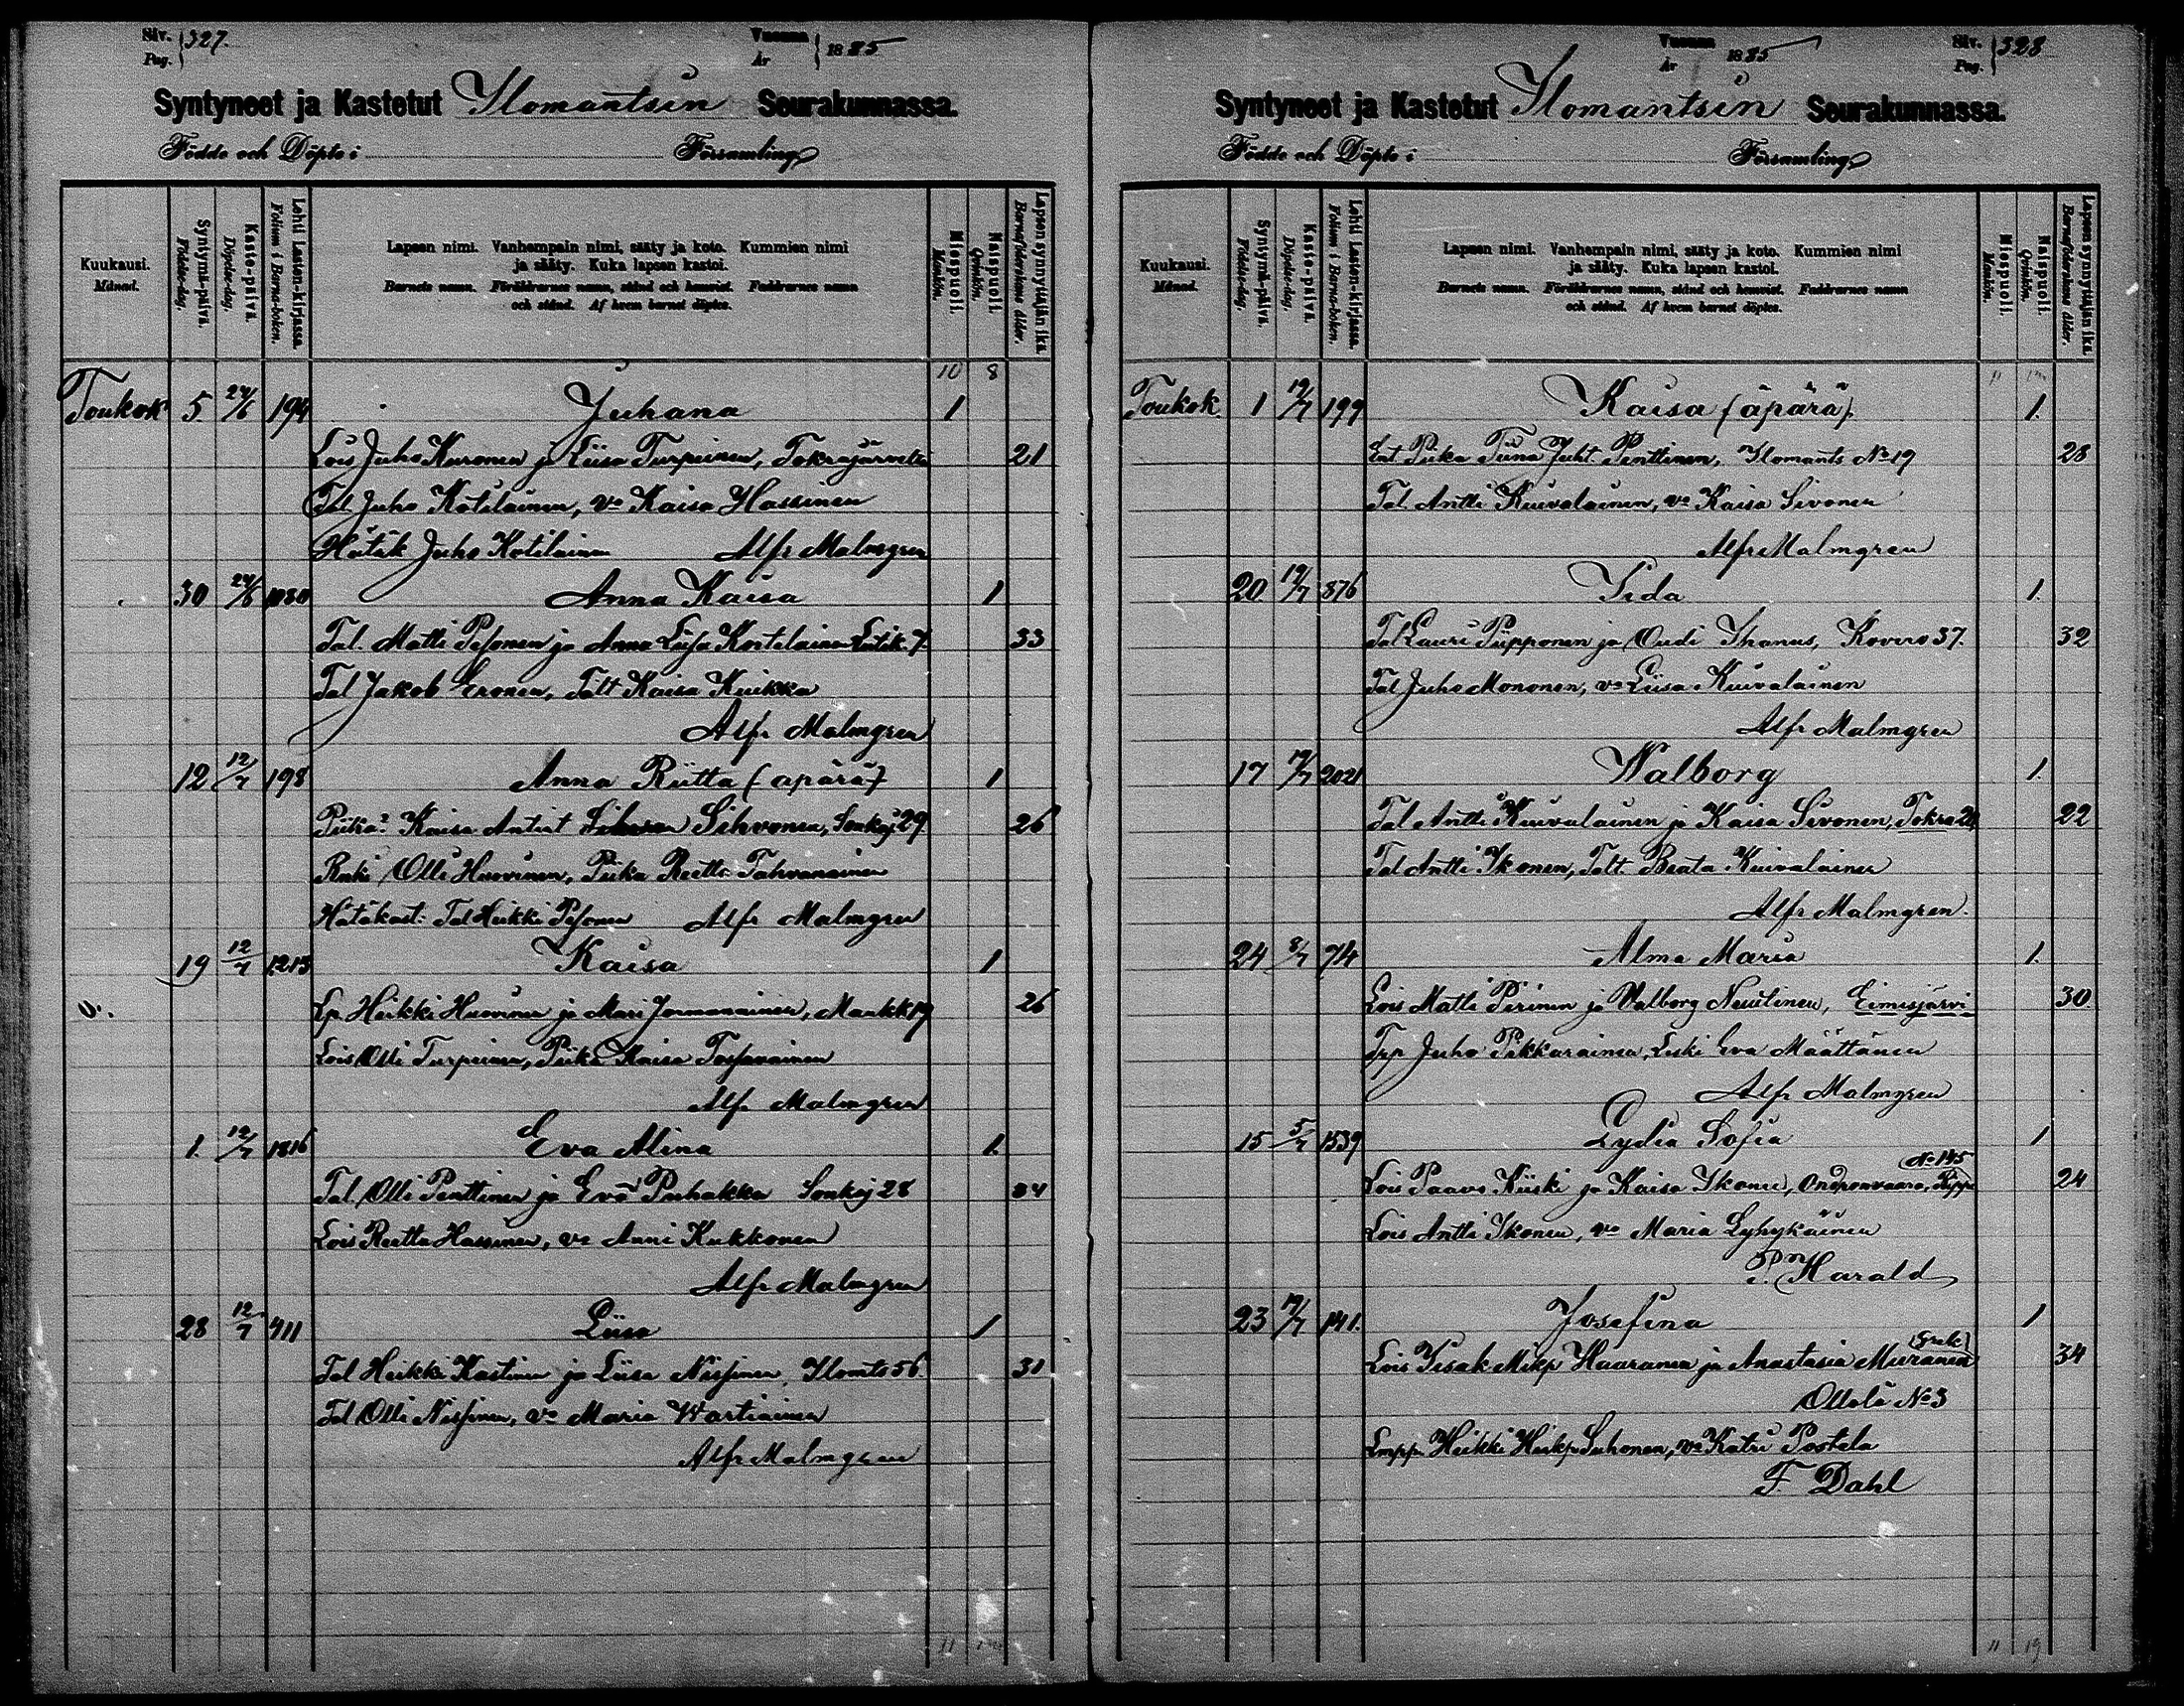 Siv. 327. Vuonna 1885
Pag. År
Syntyneet ja Kastetut Ilomantsin Seurakunnassa.
Födde och Döpte i Församling
Kuukausi. Månad.
Syntymä-päivä. Födelse-dag.
Kaste-päivä. Döpelse-dag.
Lehti Lasten-kirjassa. Folium i Barna-boken.
Lapsen nimi. Vanhempain nimi, sääty ja koto. Kummien nimi
ja sääty. Kuka lapsen kastoi.
Barnets namn. Föräldrarnes namn, stånd och hemvist. Faddrarnes namn
och stånd. Af hvem barnet döptes.
Miespuoli. Mankön.
Naispuoli. Qvinkön.
Lapsen synnyttäjän ikä. Barnaföderskans ålder.
10 8
Toukok 5. 24/6 194 Juhana 1
Lois Juho Kuronen ja Liisa Turpeinen, Tokrajärvellä 21
Tal Juho Kotilainen, vo Kaisa Hassinen
Hätäk Juho Kotilainen Alfr Malmgren
30 24/6 1080 Anna Kaisa 1
Tal. Matti Pesonen ja Anna Liisa Kortelainen 7. 33
Tal Jakob Eronen, Talt Kaisa Kuikka
Alfr Malmgren
12 12/7 198 Anna Riitta (äpärä) 1
Piika Kaisa Antint Sihvonen, Sonkaj 29. 26
Renki Olli Huovinen, Piika Reetta Tahvanainen
Hätäkast: Tal Heikki Pesonen Alfr Malmgren
19 12/7 1213 Kaisa 1
Lp Heikki Huovinen ja Mari Jormanainen, Maukk 19 26
Lois Olli Turpeinen, Piika Kaisa Tossavainen
Alfr Malmgren
1. 12/7 1816 Eva Alina 1.
Tal Olli Penttinen ja Eva Puhakka Sonkaj 28 34
Lois Reetta Hassinen, vo Anni Kukkonen
Alfr Malmgren
28 12/7 411 Liisa 1
Tal Heikki Kastinen ja Liisa Nissinen, Ilomts 56. 31
Tal Olli Nissinen, vo Maria Wartiainen
Alfr Malmgren
11
Vuonna 1885 Siv. 328
År Pag.
Syntyneet ja Kastetut Ilomantsin Seurakunnassa.
Födde och Döpte i Församling
Kuukausi. Månad.
Syntymä-päivä. Födelse-dag.
Kaste-päivä. Döpelse-dag.
Lehti Lasten-kirjassa. Folium i Barna-boken.
Lapsen nimi. Vanhempain nimi, sääty ja koto. Kummien nimi
ja sääty. Kuka lapsen kastoi.
Barnets namn. Föräldrarnes namn, stånd och hemvist. Faddrarnes namn
och stånd. Af hvem barnet döptes.
Miespuoli. Mankön.
Naispuoli. Qvinkön.
Lapsen synnyttäjän ikä. Barnaföderskans ålder.
11
Toukok. 1 19/7 199 Kaisa (äpärä) 1.
Ent. Piika Tiina Juht. Penttinen, Ilomants No 19 28
Tal. Antti Kuivalainen, vo Kaisa Sivonen
Alfr Malmgren
20. 19/7 876 Iida 1.
Tal Lauri Piipponen ja Oudi Ihanus, Kovero 37. 32
Tal Juho Mononen, vo Liisa Kuivalainen
Alfr Malmgren
17 19/7 2021 Walborg 1.
Tal Antti Kuivalainen ja Kaisa Sivonen, Tokra 20 22
Tal Antti Ikonen, Talt. Beata Kuivalainen
Alfr Malmgren.
24 8/7 74 Alma Maria 1.
Lois Matti Pirinen ja Valborg Nuutinen, Eimisjärvi 30.
Juho Pikkarainen, Leski Eva Määttänen
Alfr Malmgren
15 5/7 1539 Lydia Sofia 1
No 145
Lois Paavo Kiiski ja Kaisa Ikonen, Ondronvaara, 24
Lois Antti Ikonen, vo Maria Lyhykäinen
P. Harald
23 19/7 141. Josefina 1
Grek
Lois Iisak Mikp Haaranen ja Anastasia Muranen 34
Ollola No 3
Heikki Heikp Suhonen, vo Katri Postela
F. Dahl
11 19